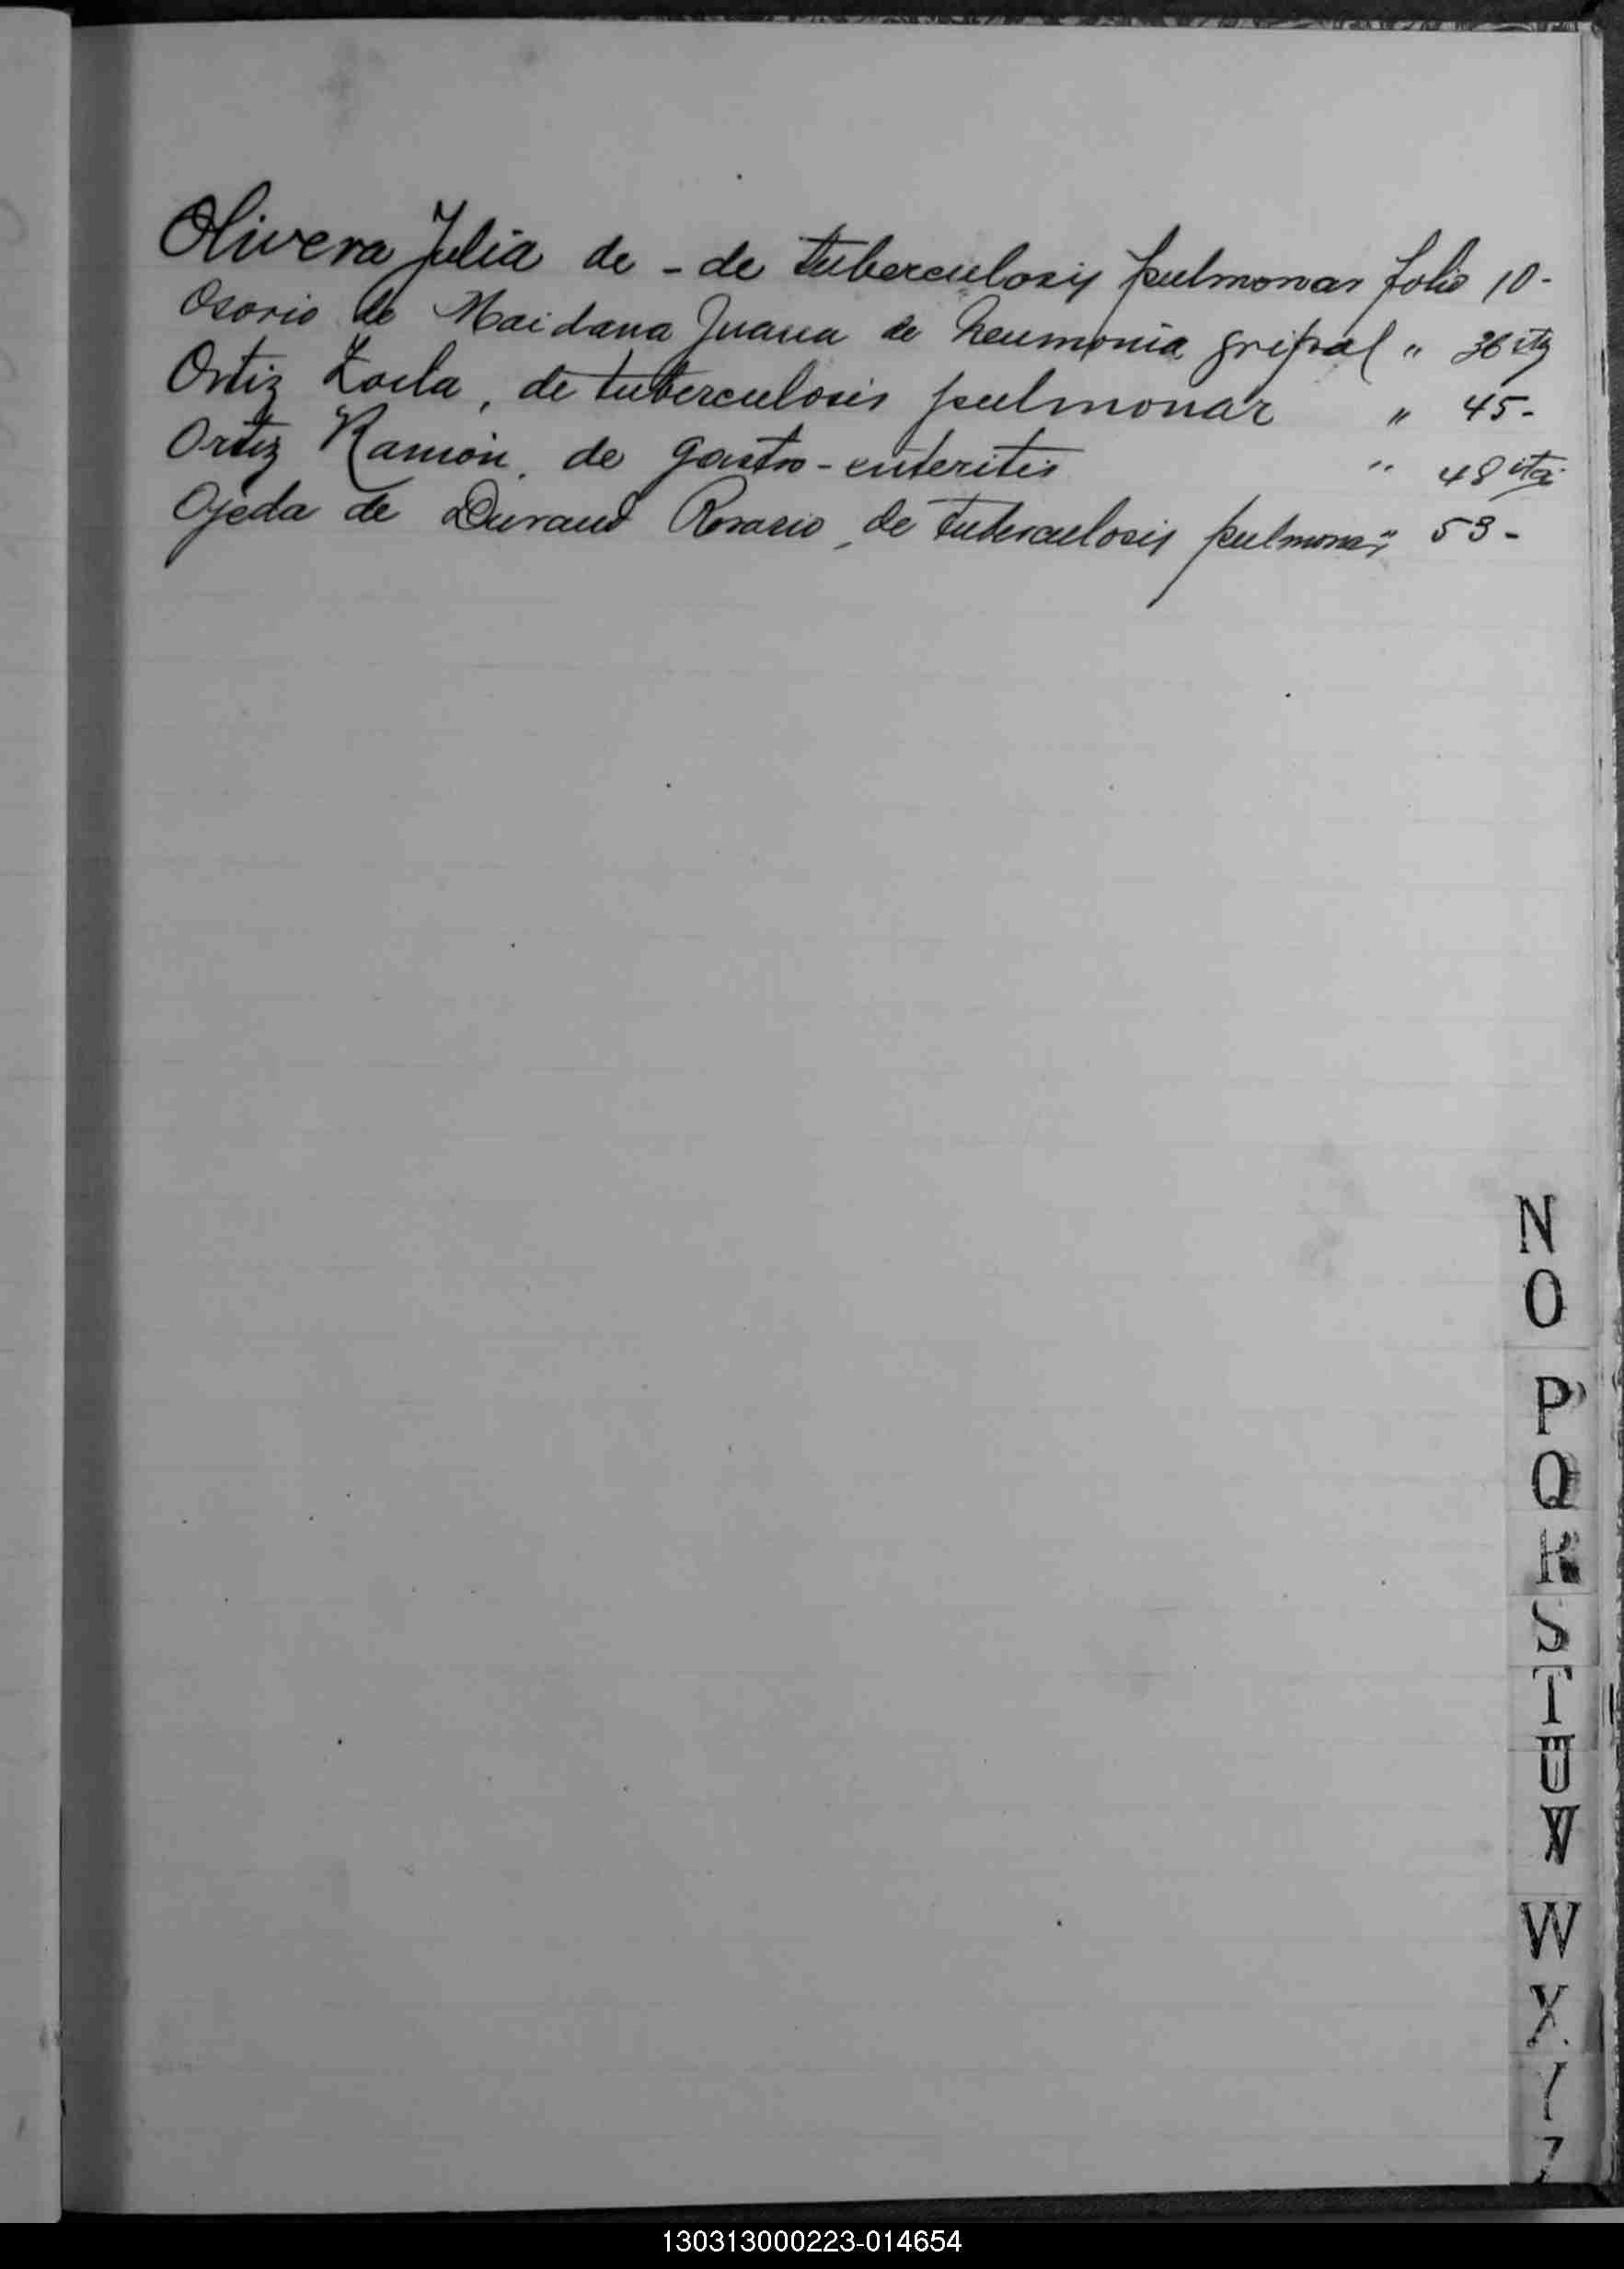 Olivera Julia de - de tuberculosis pulmonar folio 10-
Osorio de Maidana Juana de neumonia gripal " 36 vta
Ortiz Zoila, de tuberculosis pulmonar " 45-
Ortiz Ramón, de gastro-enteritis " 48 vta
Ojeda de Durand Rosario, de tuberculosis pulmonar " 53-
N
O
P
Q
R
S
T
U
V
W
X
Y
Z
130313000223-014654